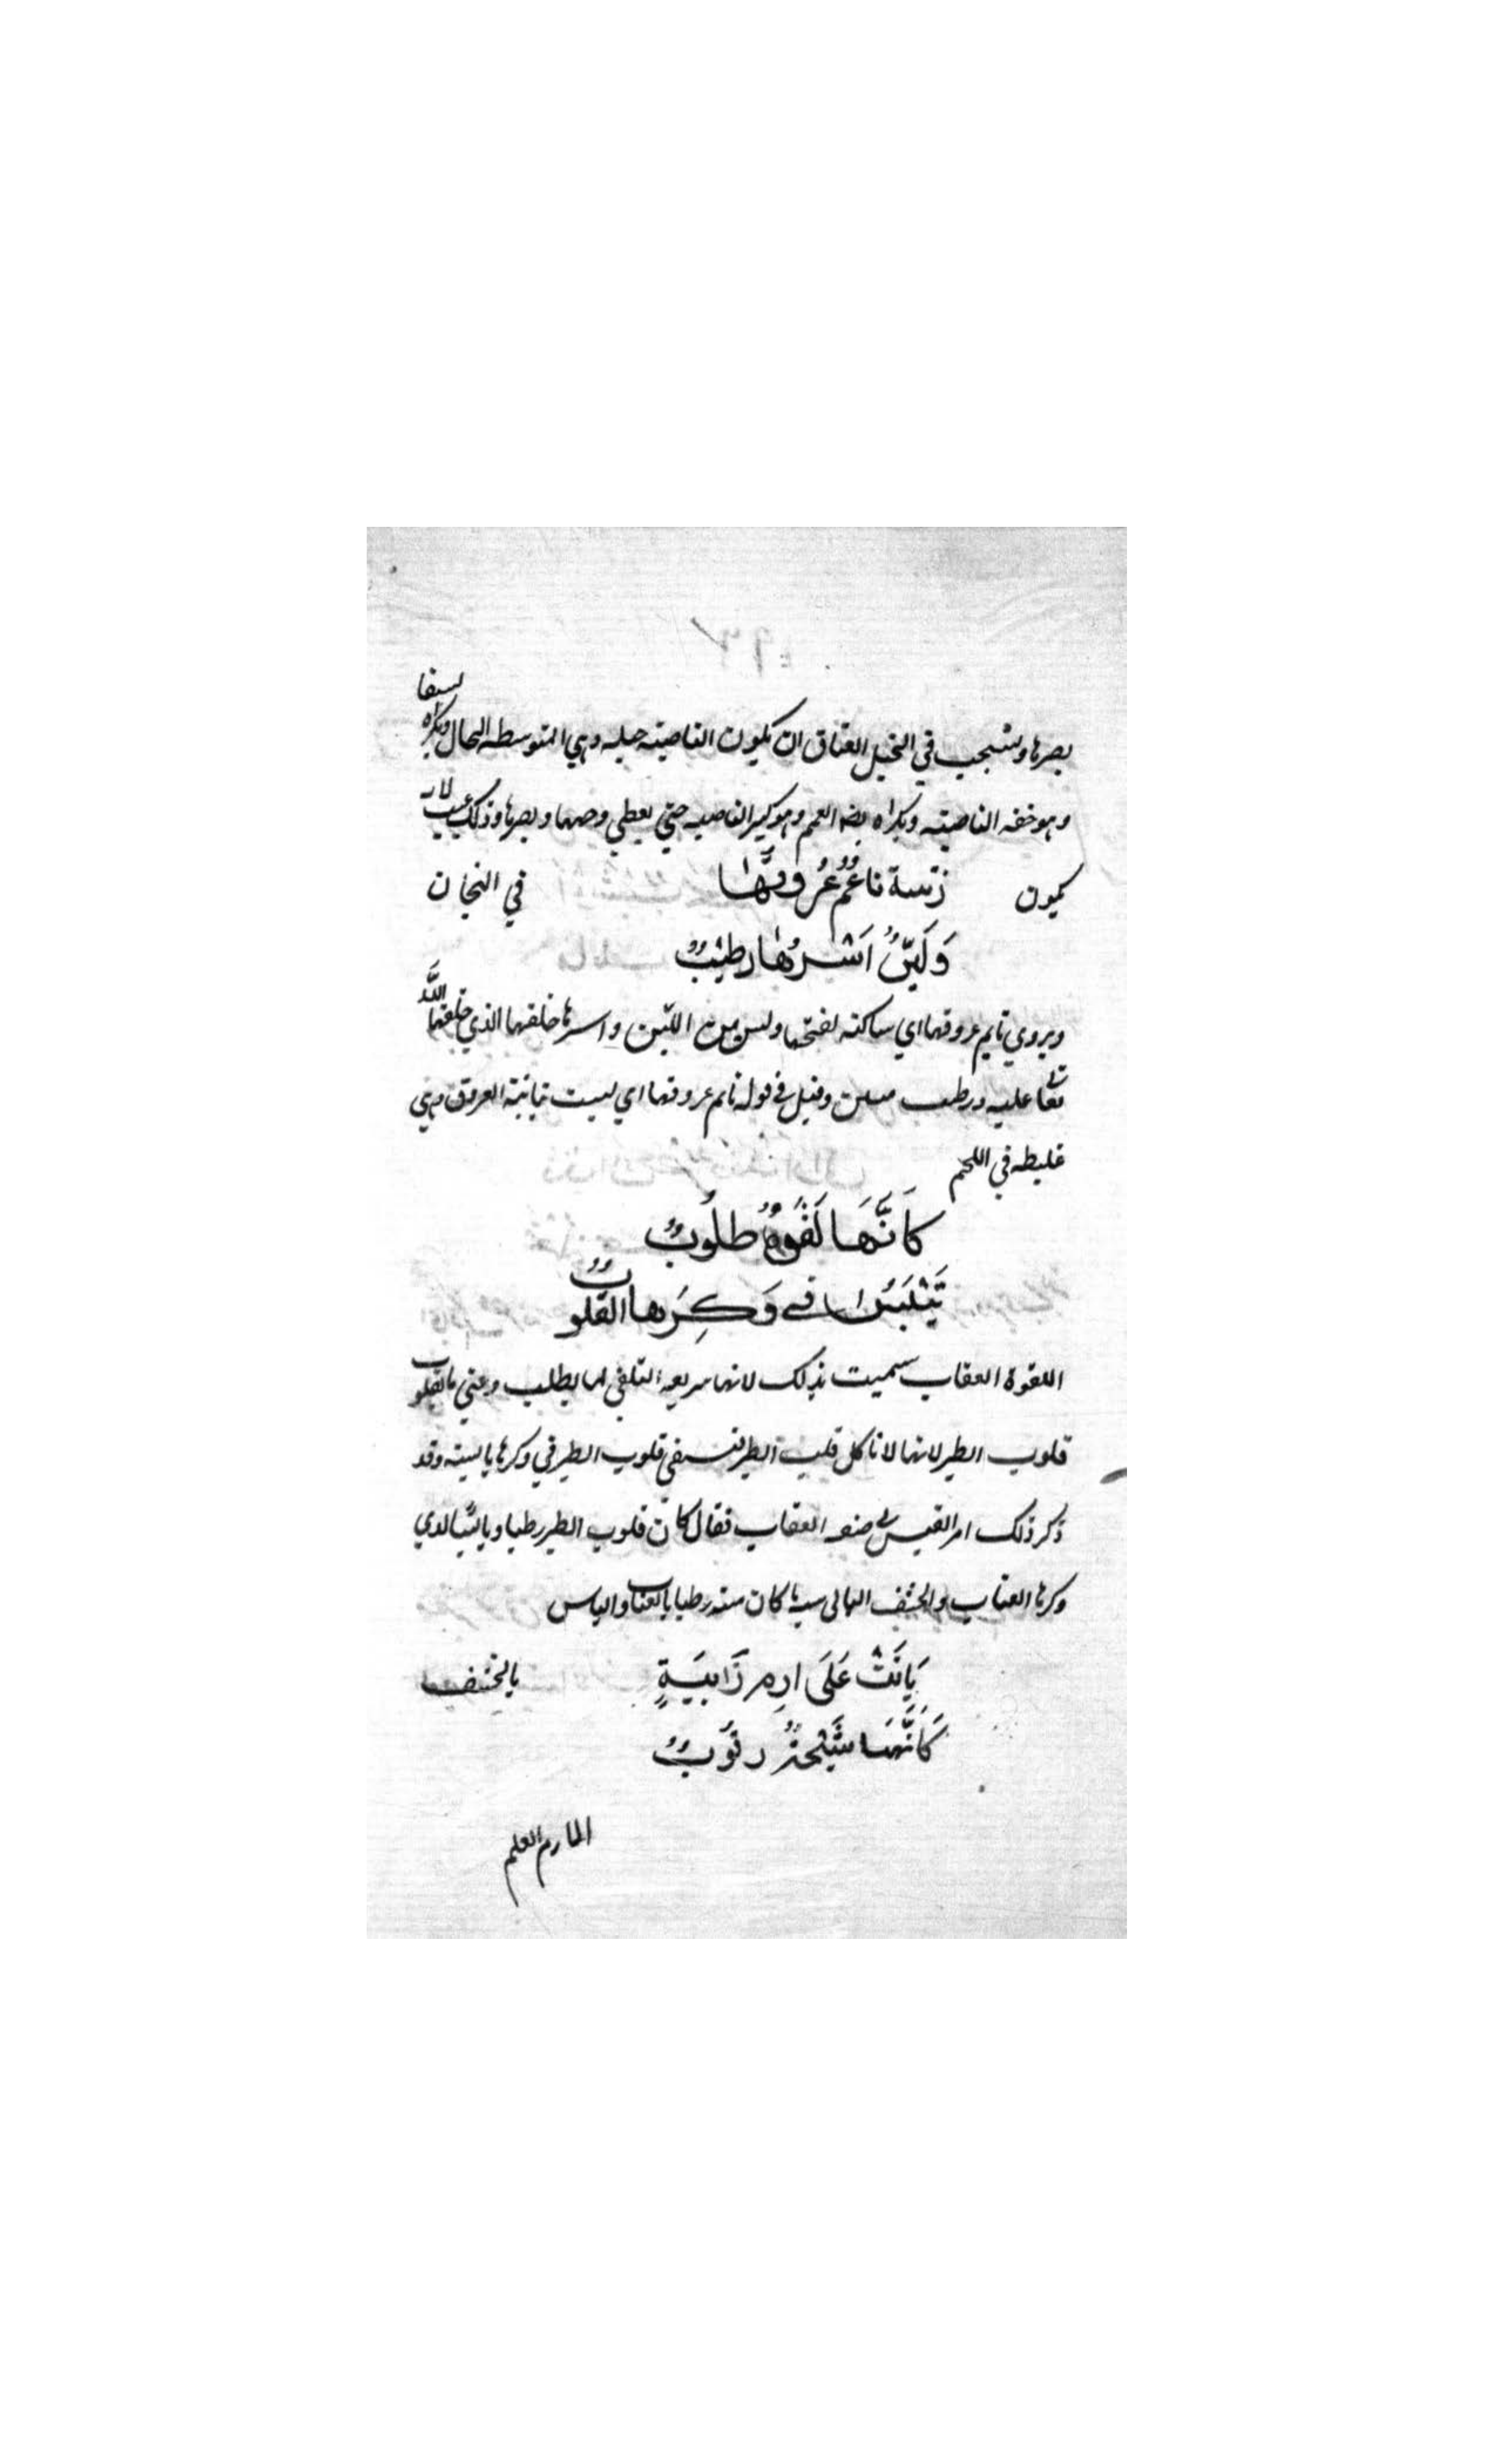 بصرها ويستحب في الخيل العتاق ان يكون الناصيته جيله وهي المتوسطه الحال ويكراه السفا
وهو خفه الناصيته ويكراه الغمم وهو كثير الناصيه حتي يغطي وجهها وبصرها وذلك عيب لان
يكون زيتية ناعُمٌ عُرُوقُهَا في الهجان
وَلَيِّنٌ اَسْرُهَا رطيْبٌ
ويروي نايم عروقها اي ساكنه لصحتها ولين من اللين واسرها خلقها الذي خلقها اللّه
تعا عليه ورطب وقيل في قوله نايم عروقها اي ليست نابتة العروق وهي
غليظه في اللحم
كَاَنَّهَا لَقْوَةٌ طلُوبٌ
تَيْبَسُ في وَكِرَها القلُوبٌ
اللقوة العقاب سميت بذلك لانها سريعه التلقي لما يطلب وعني بالقلوب
قلوب الطير لانها لا تاكل قلب الطير فتبقي قلوب الطير في وكرها يابسيته وقد
ذكر ذلك امر القيس في صفه العقاب فقال كان قلوب الطير رطبا ويابسًا لدي
وكرها العناب والحشف البالي ما كان منه رطبا بالعناب واليابس
بَانَتْ عَلَى ارِم رَابِيَةٍ بالحشف
كَاَنَّهَا شَيْخَةٌ رقُوبٌ
الارم العلم